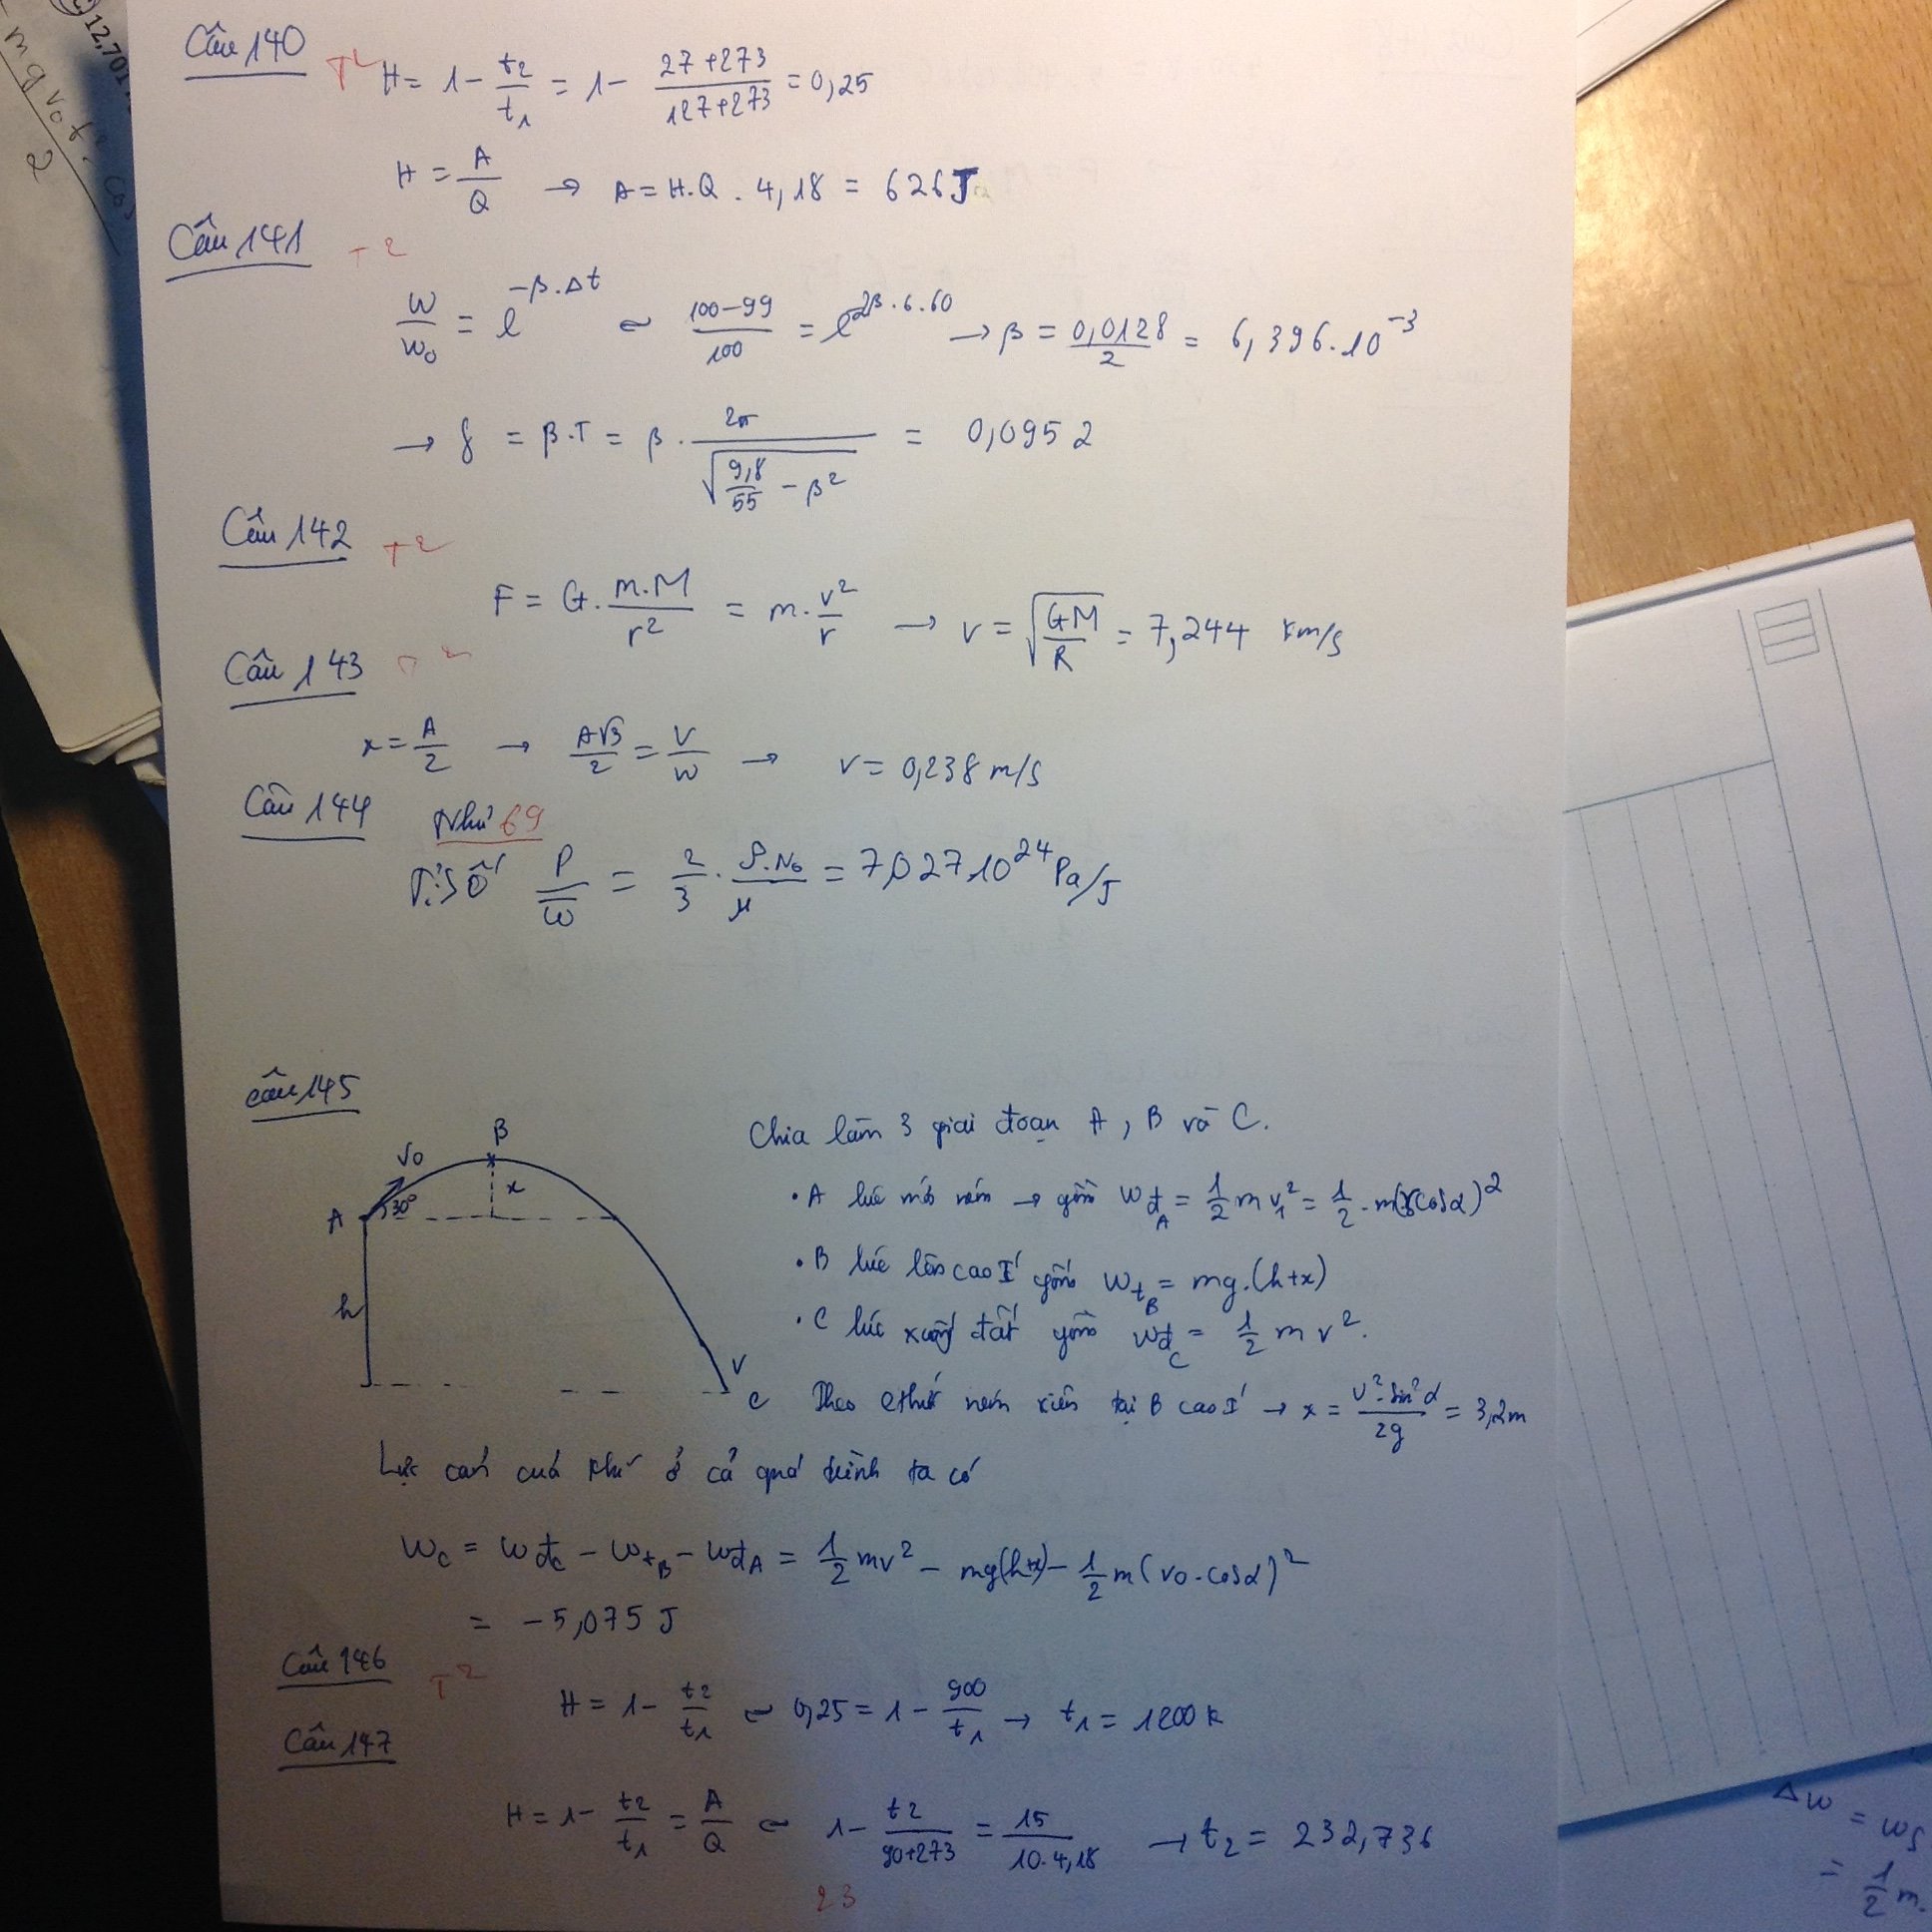 12,701
mg v₀ t². cos
2
Câu 140 T²
H = 1 - t₂/t₁ = 1 - (27+273)/(127+273) = 0,25
H = A/Q → A = H.Q . 4,18 = 626J
Câu 141 T²
W/W₀ = e^(-β.Δt) ⇔ (100-99)/100 = e^(2β.6.60) → β = 0,0128/2 = 6,396.10⁻³
→ δ = β.T = β . 2π/√(9,8/55 - β²) = 0,0952
Câu 142 T²
F = G. m.M/r² = m. v²/r → v = √(GM/R) = 7,244 km/s
Câu 143 T²
x = A/2 → A√3/2 = V/ω → v = 0,238 m/s
Câu 144 Như 69
Tỉ số P/W = 2/3 . ρ.N₀/μ = 7,027.10²⁴ Pa/J
Câu 145
Chia làm 3 giai đoạn A, B và C.
v₀ B x 30° A h V C
• A lúc mới ném → gồm Wđ_A = 1/2 m v₁² = 1/2 . m( cosα)²
• B lúc lên cao I gồm Wt_B = mg.(h+x)
• C lúc xuống đất gồm Wđ_C = 1/2 m v².
Theo cthức ném xiên tại B cao I → x = v².sin²α/2g = 3,2m
Lực cản cuả khí ở cả quá trình ta có
W_C = Wđ_C - Wt_B - Wđ_A = 1/2 mv² - mg(h+x) - 1/2 m(v₀.cosα)²
= -5,075 J
Câu 146 T²
H = 1 - t₂/t₁ ⇔ 0,25 = 1 - 900/t₁ → t₁ = 1200 K
Câu 147
H = 1 - t₂/t₁ = A/Q ⇔ 1 - t₂/(90+273) = 15/(10.4,18) → t₂ = 232,736
23
ΔW = W
= 1/2 m.